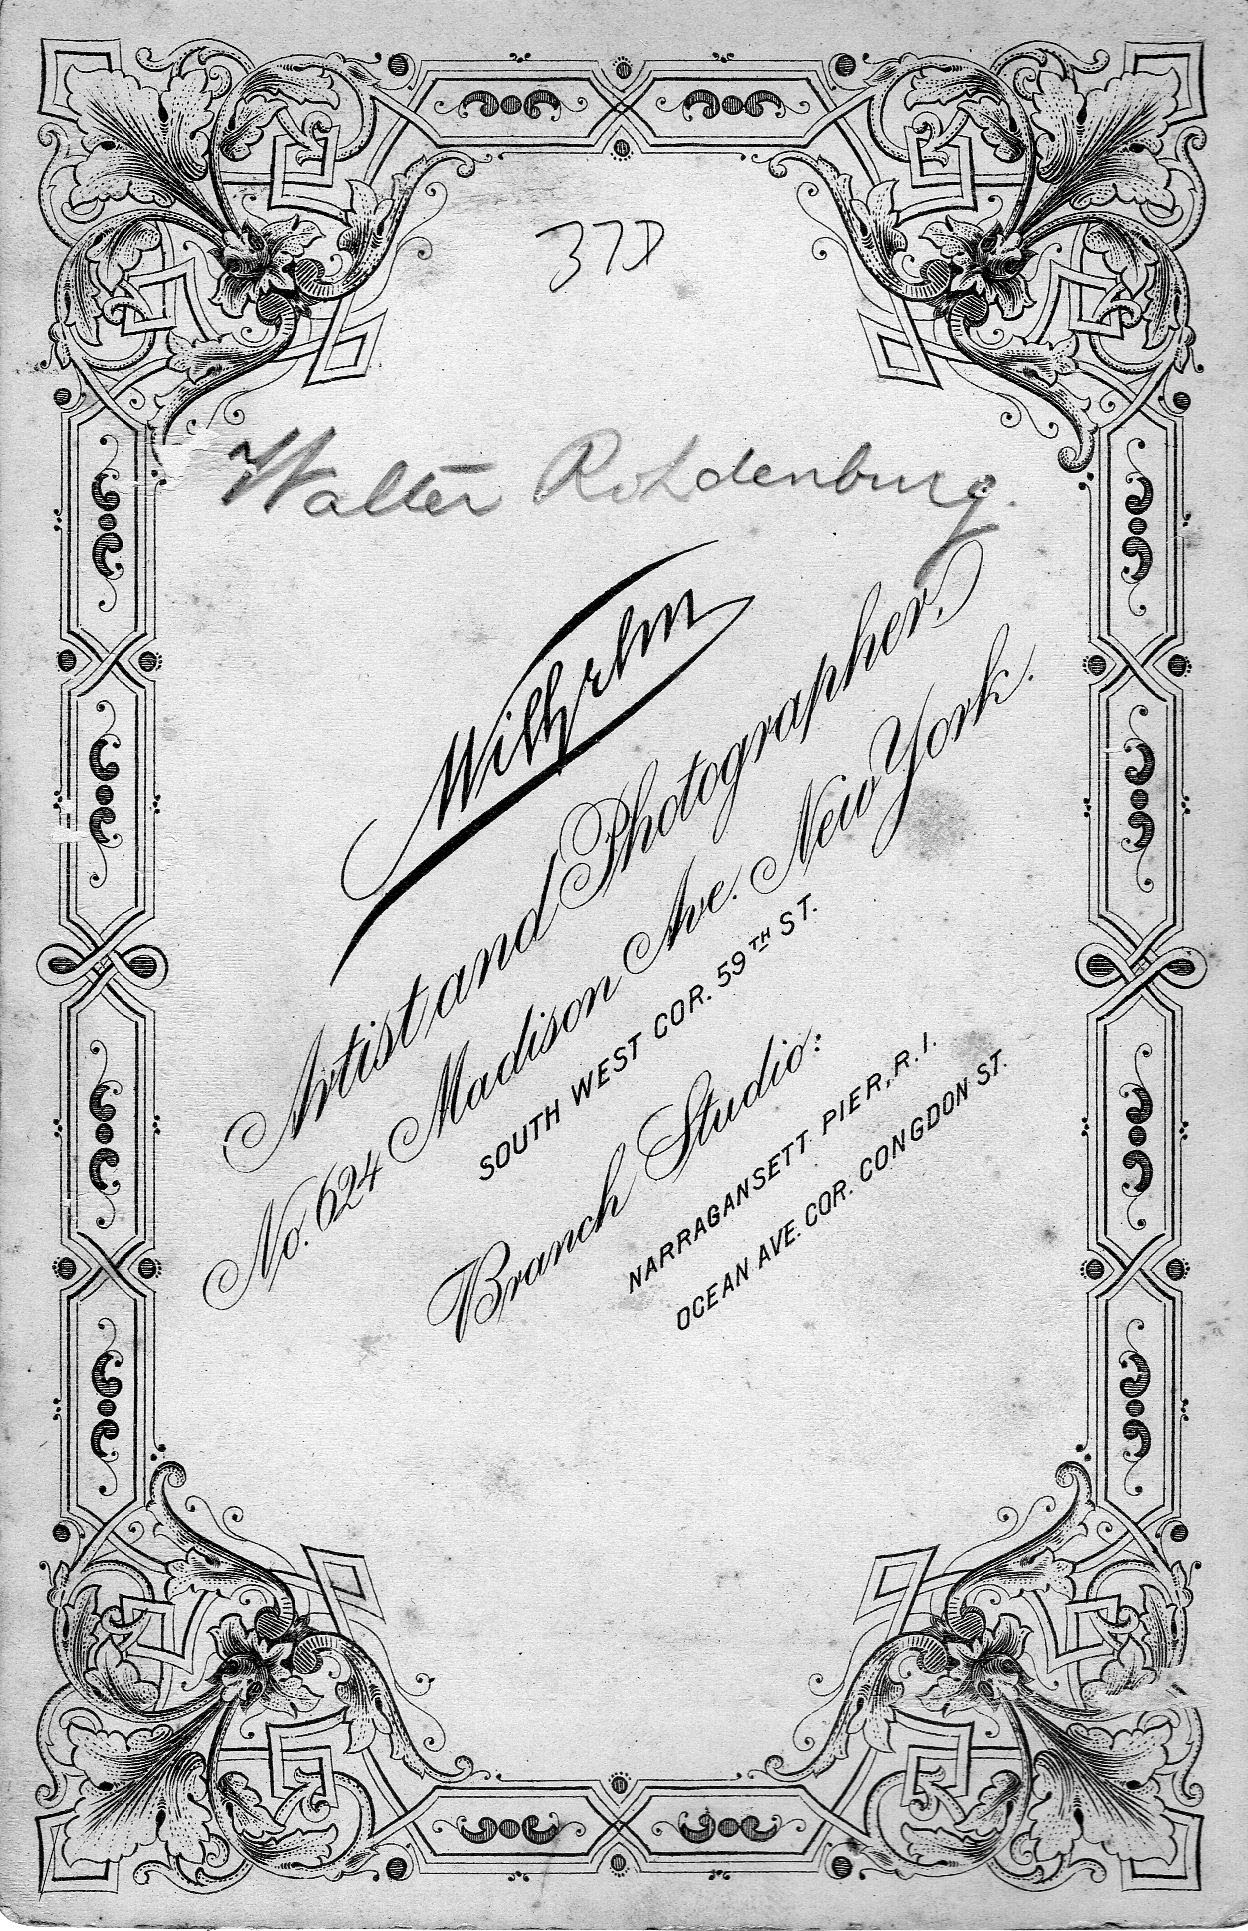 37D
Walter Rohdenburg.
Wilhelm
Artist and Photographer,
No. 624 Madison Ave. New York.
SOUTH WEST COR. 59TH ST.
Branch Studio:
NARRAGANSETT PIER, R. I.
OCEAN AVE. COR. CONGDON ST.